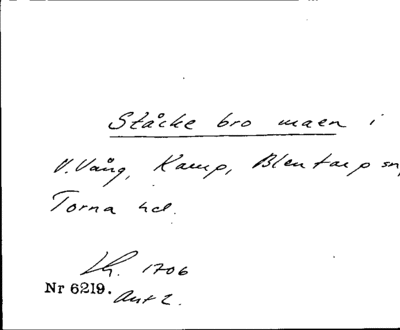 Stäcke bro maen i
V. Vång, Kamp, Blentarp sn,
Torna hd.
Lh. 1706
Nr 6219. Ant 2.